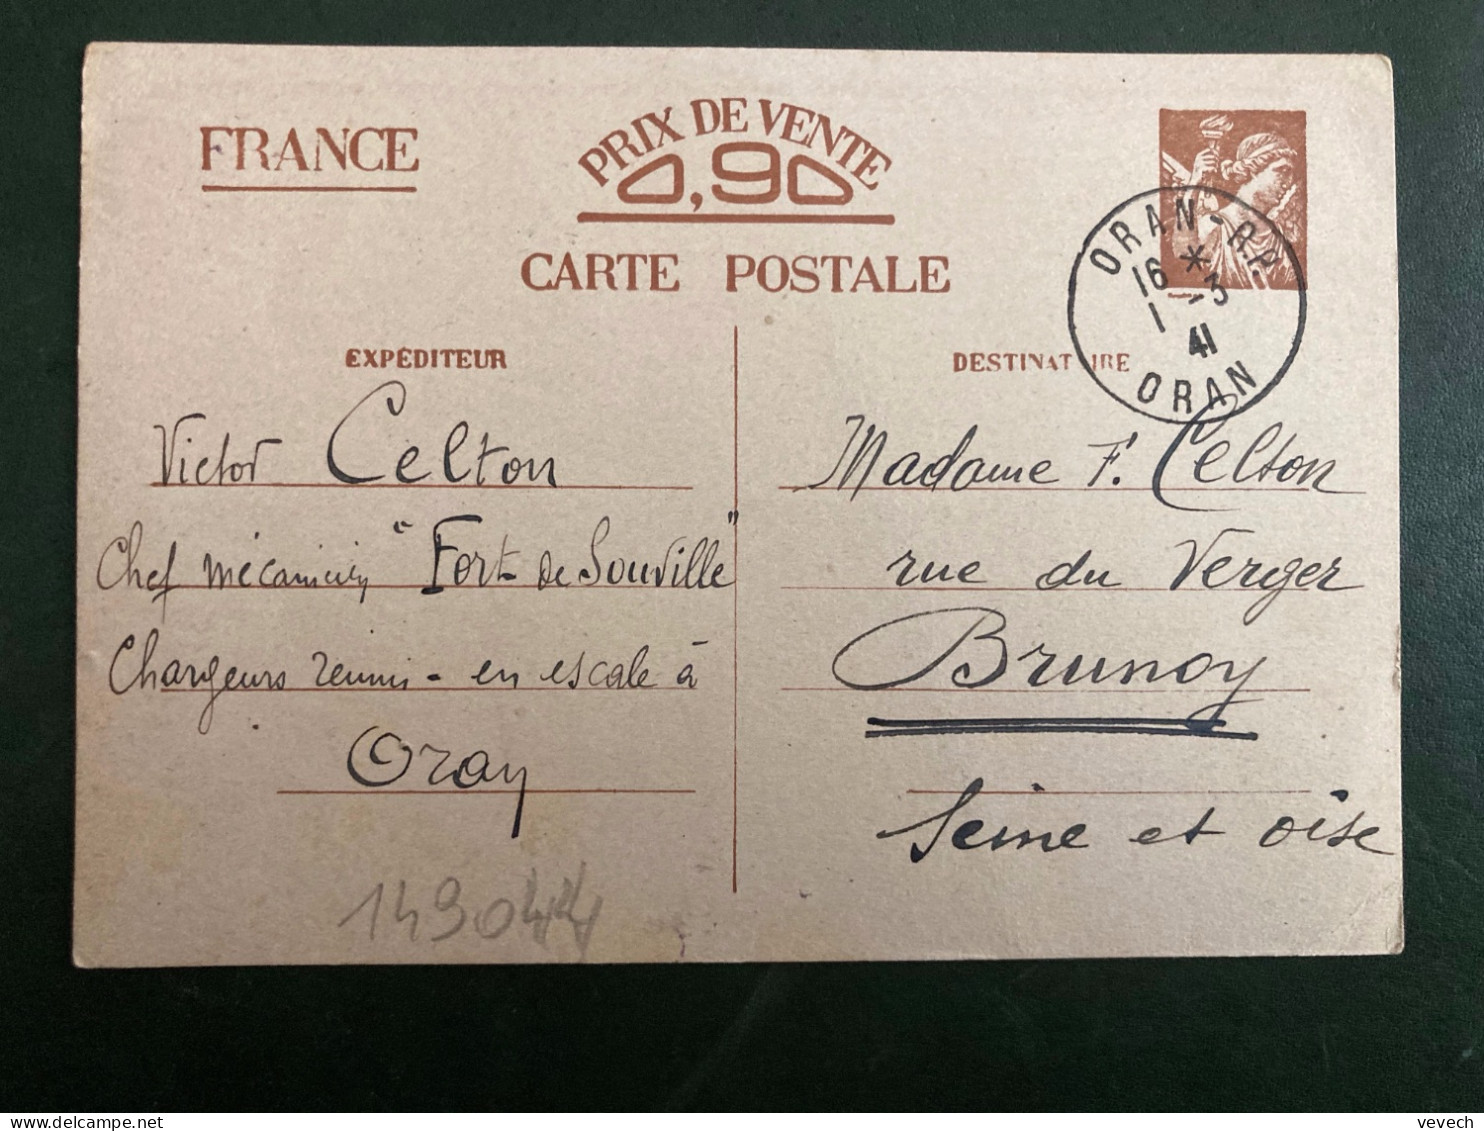 FRANCE
PRIX DE VENTE
0,90
CARTE POSTALE
ORAN-R.P.
16 *
1 -3
41
ORAN
EXPÉDITEUR
Victor Celton
Chef mécanicien "Fort de Souville"
Chargeurs réunis - en escale à
Oran
DESTINATAIRE
Madame F. Celton
rue du Verger
Brunoy
Seine et oise
149044
vevech